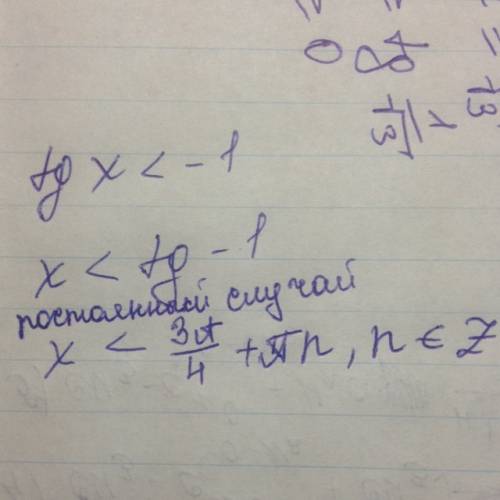 tg x < -1
x < tg -1
постоянный случай
x < 3π/4 + πn, n ∈ Z
= 
0
tg 1/√3
= 13